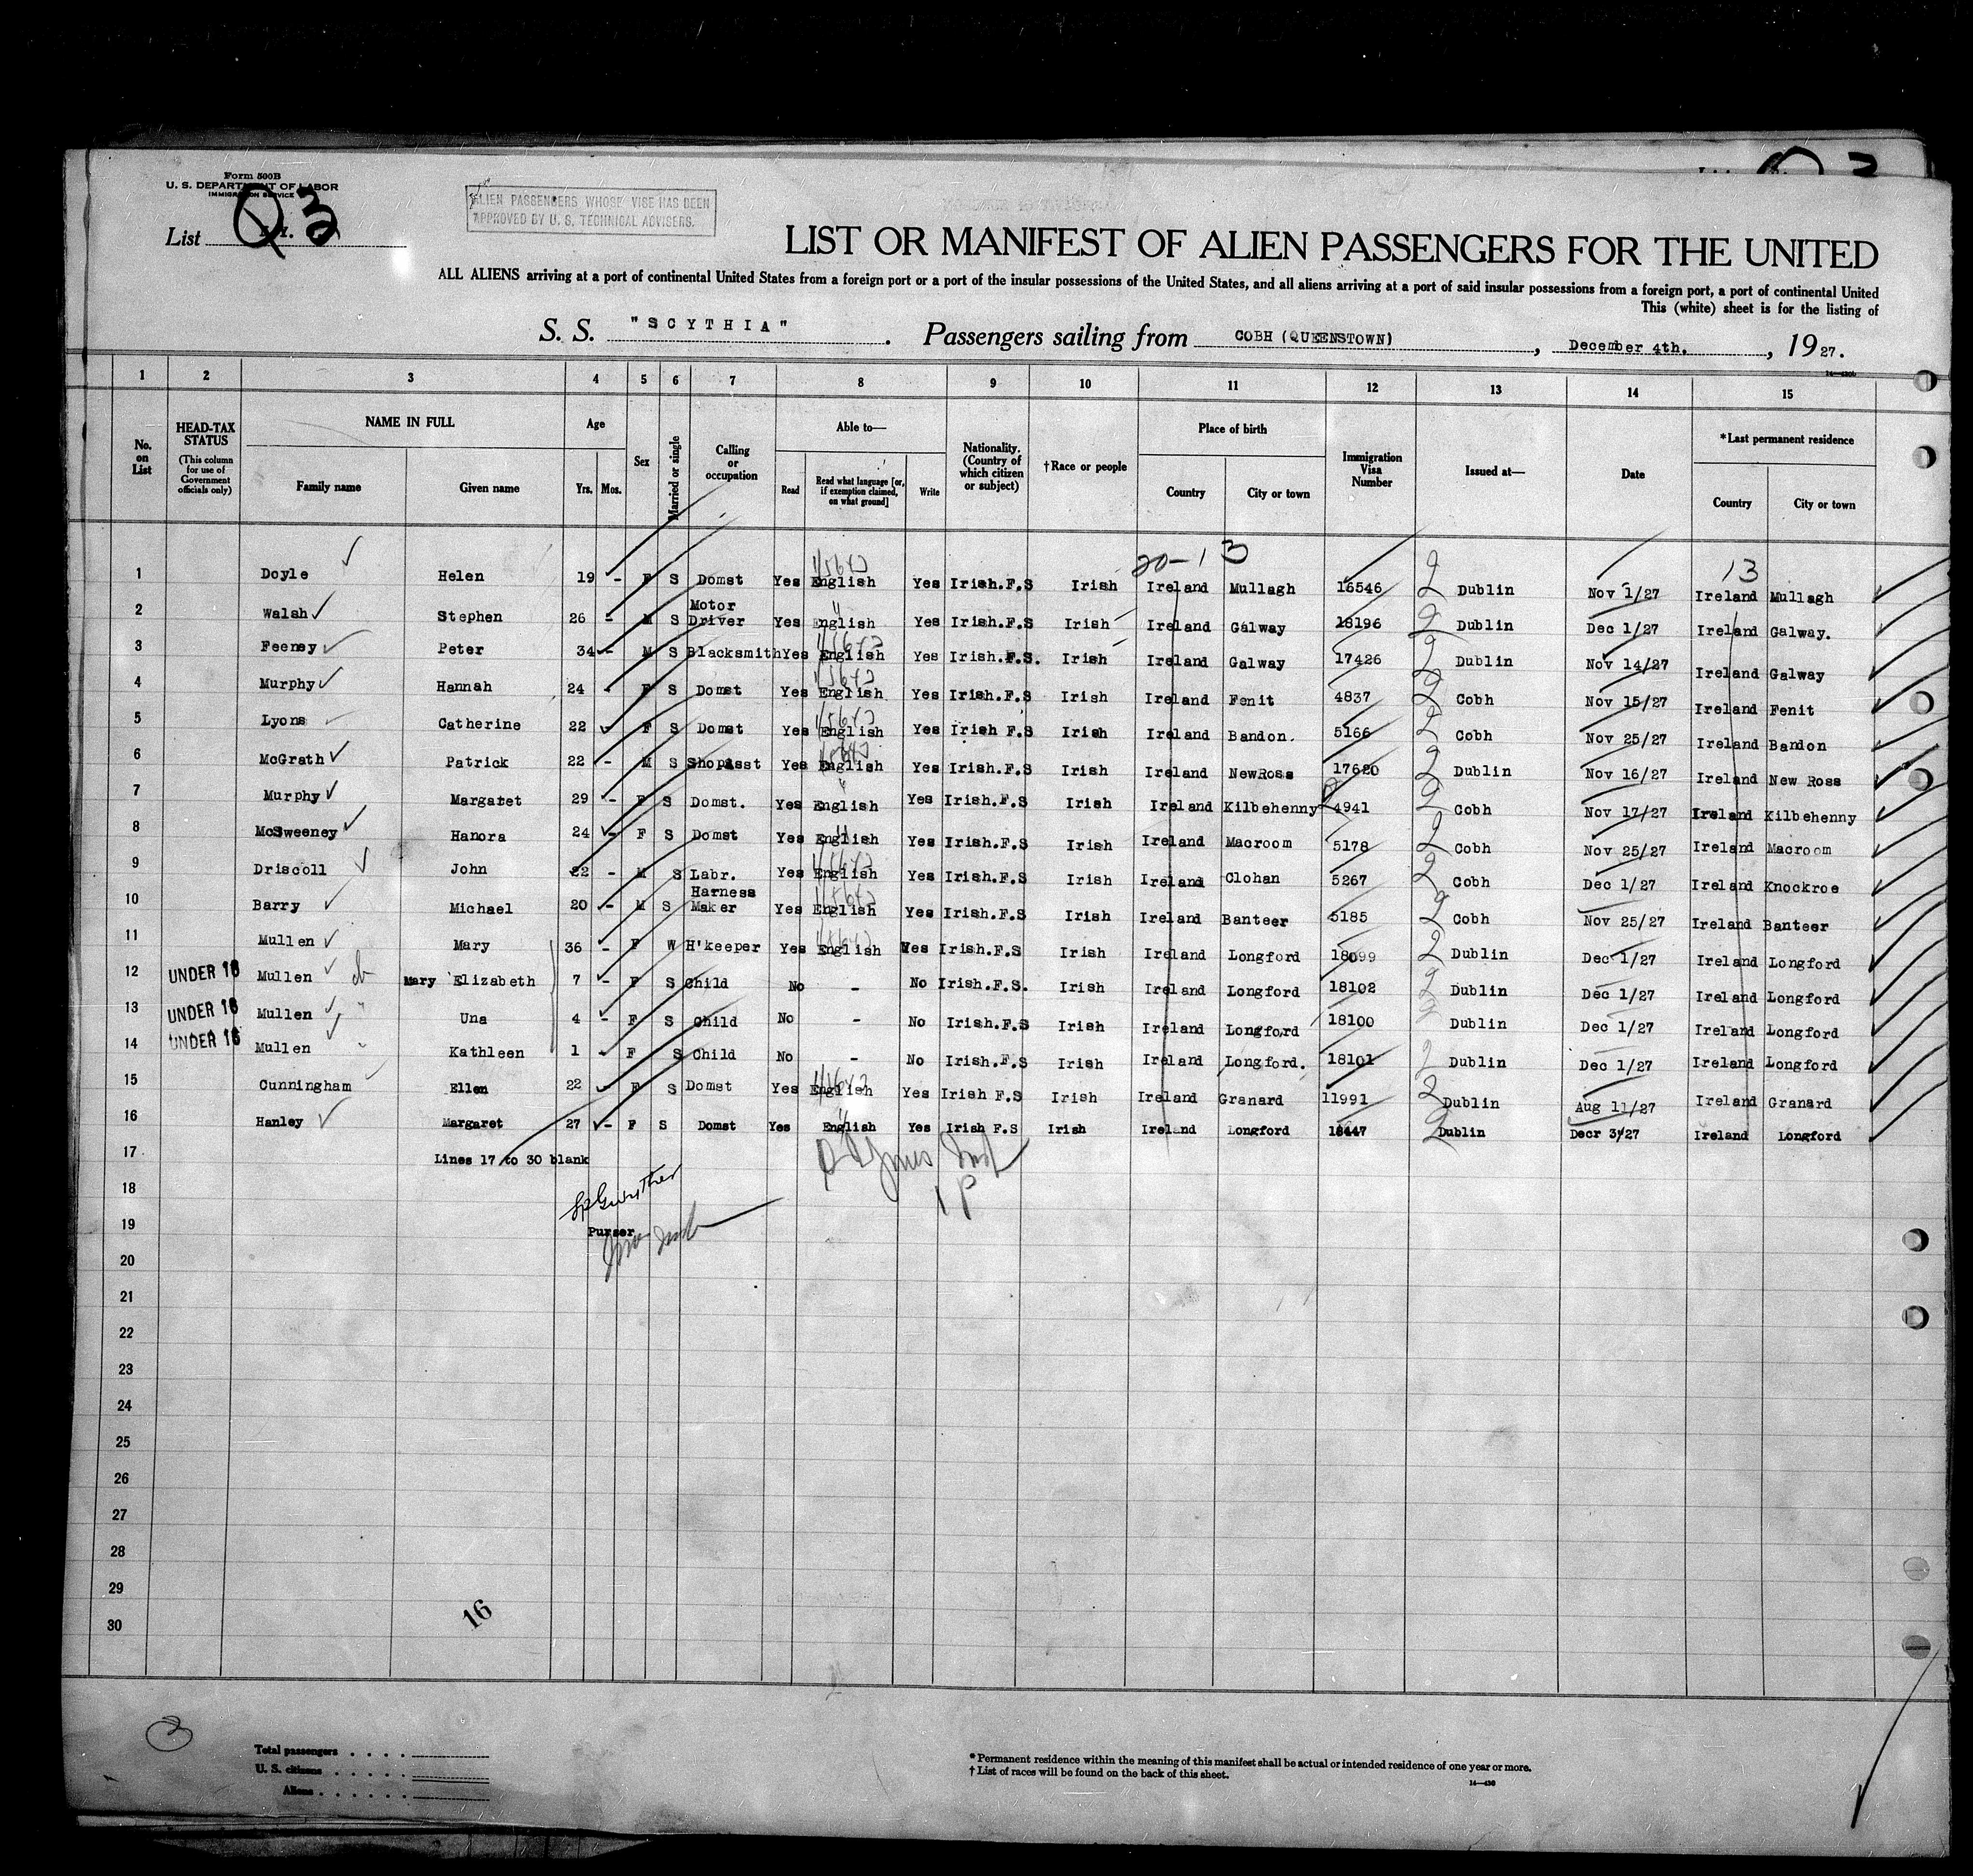 Form 500B
U. S. DEPARTMENT OF LABOR
IMMIGRATION SERVICE
List
Q 3
ALIEN PASSENGERS WHOSE VISE HAS BEEN
APPROVED BY U. S. TECHNICAL ADVISERS.
LIST OR MANIFEST OF ALIEN PASSENGERS FOR THE UNITED
ALL ALIENS arriving at a port of continental United States from a foreign port or a port of the insular possessions of the United States, and all aliens arriving at a port of said insular possessions from a foreign port, a port of continental United
This (white) sheet is for the listing of
S. S. "SCYTHIA". Passengers sailing from COBH (QUEENSTOWN), December 4th., 1927.
1 2 3 4 5 6 7 8 9 10 11 12 13 14 15
No. on List
HEAD-TAX STATUS
(This column for use of Government officials only)
NAME IN FULL
Family name Given name
Age
Yrs. Mos.
Sex
Married or single
Calling or occupation
Able to—
Read
Read what language [or, if exemption claimed, on what ground]
Write
Nationality. (Country of which citizen or subject)
†Race or people
Place of birth
Country City or town
Immigration Visa Number
Issued at—
Date
*Last permanent residence
Country City or town
20-13 13
1 Doyle Helen 19 - F S Domst Yes English Yes Irish.F.S Irish Ireland Mullagh 16546 Dublin Nov 1/27 Ireland Mullagh
2 Walsh Stephen 26 - M S Motor Driver Yes English Yes Irish.F.S Irish Ireland Galway 18196 Dublin Dec 1/27 Ireland Galway.
3 Feeney Peter 34 - M S Blacksmith Yes English Yes Irish.F.S. Irish Ireland Galway 17426 Dublin Nov 14/27 Ireland Galway
4 Murphy Hannah 24 - F S Domst Yes English Yes Irish.F.S Irish Ireland Fenit 4837 Cobh Nov 15/27 Ireland Fenit
5 Lyons Catherine 22 - F S Domst Yes English Yes Irish F.S Irish Ireland Bandon. 5166 Cobh Nov 25/27 Ireland Bandon
6 McGrath Patrick 22 - M S Shopasst Yes English Yes Irish.F.S Irish Ireland NewRoss 17620 Dublin Nov 16/27 Ireland New Ross
7 Murphy Margaret 29 - F S Domst. Yes English Yes Irish.F.S Irish Ireland Kilbehenny 4941 Cobh Nov 17/27 Ireland Kilbehenny
8 McSweeney Hanora 24 - F S Domst Yes English Yes Irish.F.S Irish Ireland Macroom 5178 Cobh Nov 25/27 Ireland Macroom
9 Driscoll John 22 - M S Labr. Yes English Yes Irish.F.S Irish Ireland Clohan 5267 Cobh Dec 1/27 Ireland Knockroe
10 Barry Michael 20 - M S Harness Maker Yes English Yes Irish.F.S Irish Ireland Banteer 5185 Cobh Nov 25/27 Ireland Banteer
11 Mullen Mary 36 - F W H'keeper Yes English Yes Irish.F.S Irish Ireland Longford 18099 Dublin Dec 1/27 Ireland Longford
12 UNDER 16 Mullen Mary Elizabeth 7 - F S Child No - No Irish.F.S. Irish Ireland Longford 18102 Dublin Dec 1/27 Ireland Longford
13 UNDER 16 Mullen Una 4 - F S Child No - No Irish.F.S Irish Ireland Longford 18100 Dublin Dec 1/27 Ireland Longford
14 UNDER 16 Mullen Kathleen 1 - F S Child No - No Irish.F.S Irish Ireland Longford. 18101 Dublin Dec 1/27 Ireland Longford
15 Cunningham Ellen 22 - F S Domst Yes English Yes Irish F.S Irish Ireland Granard 11991 Dublin Aug 11/27 Ireland Granard
16 Hanley Margaret 27 - F S Domst Yes English Yes Irish F.S Irish Ireland Longford 18447 Dublin Decr 3/27 Ireland Longford
17 Lines 17 to 30 blank
18
19 Purser
20
21
22
23
24
25
26
27
28
29
30
16
3
Total passengers
U. S. citizens
Aliens
* Permanent residence within the meaning of this manifest shall be actual or intended residence of one year or more.
† List of races will be found on the back of this sheet.
14—430